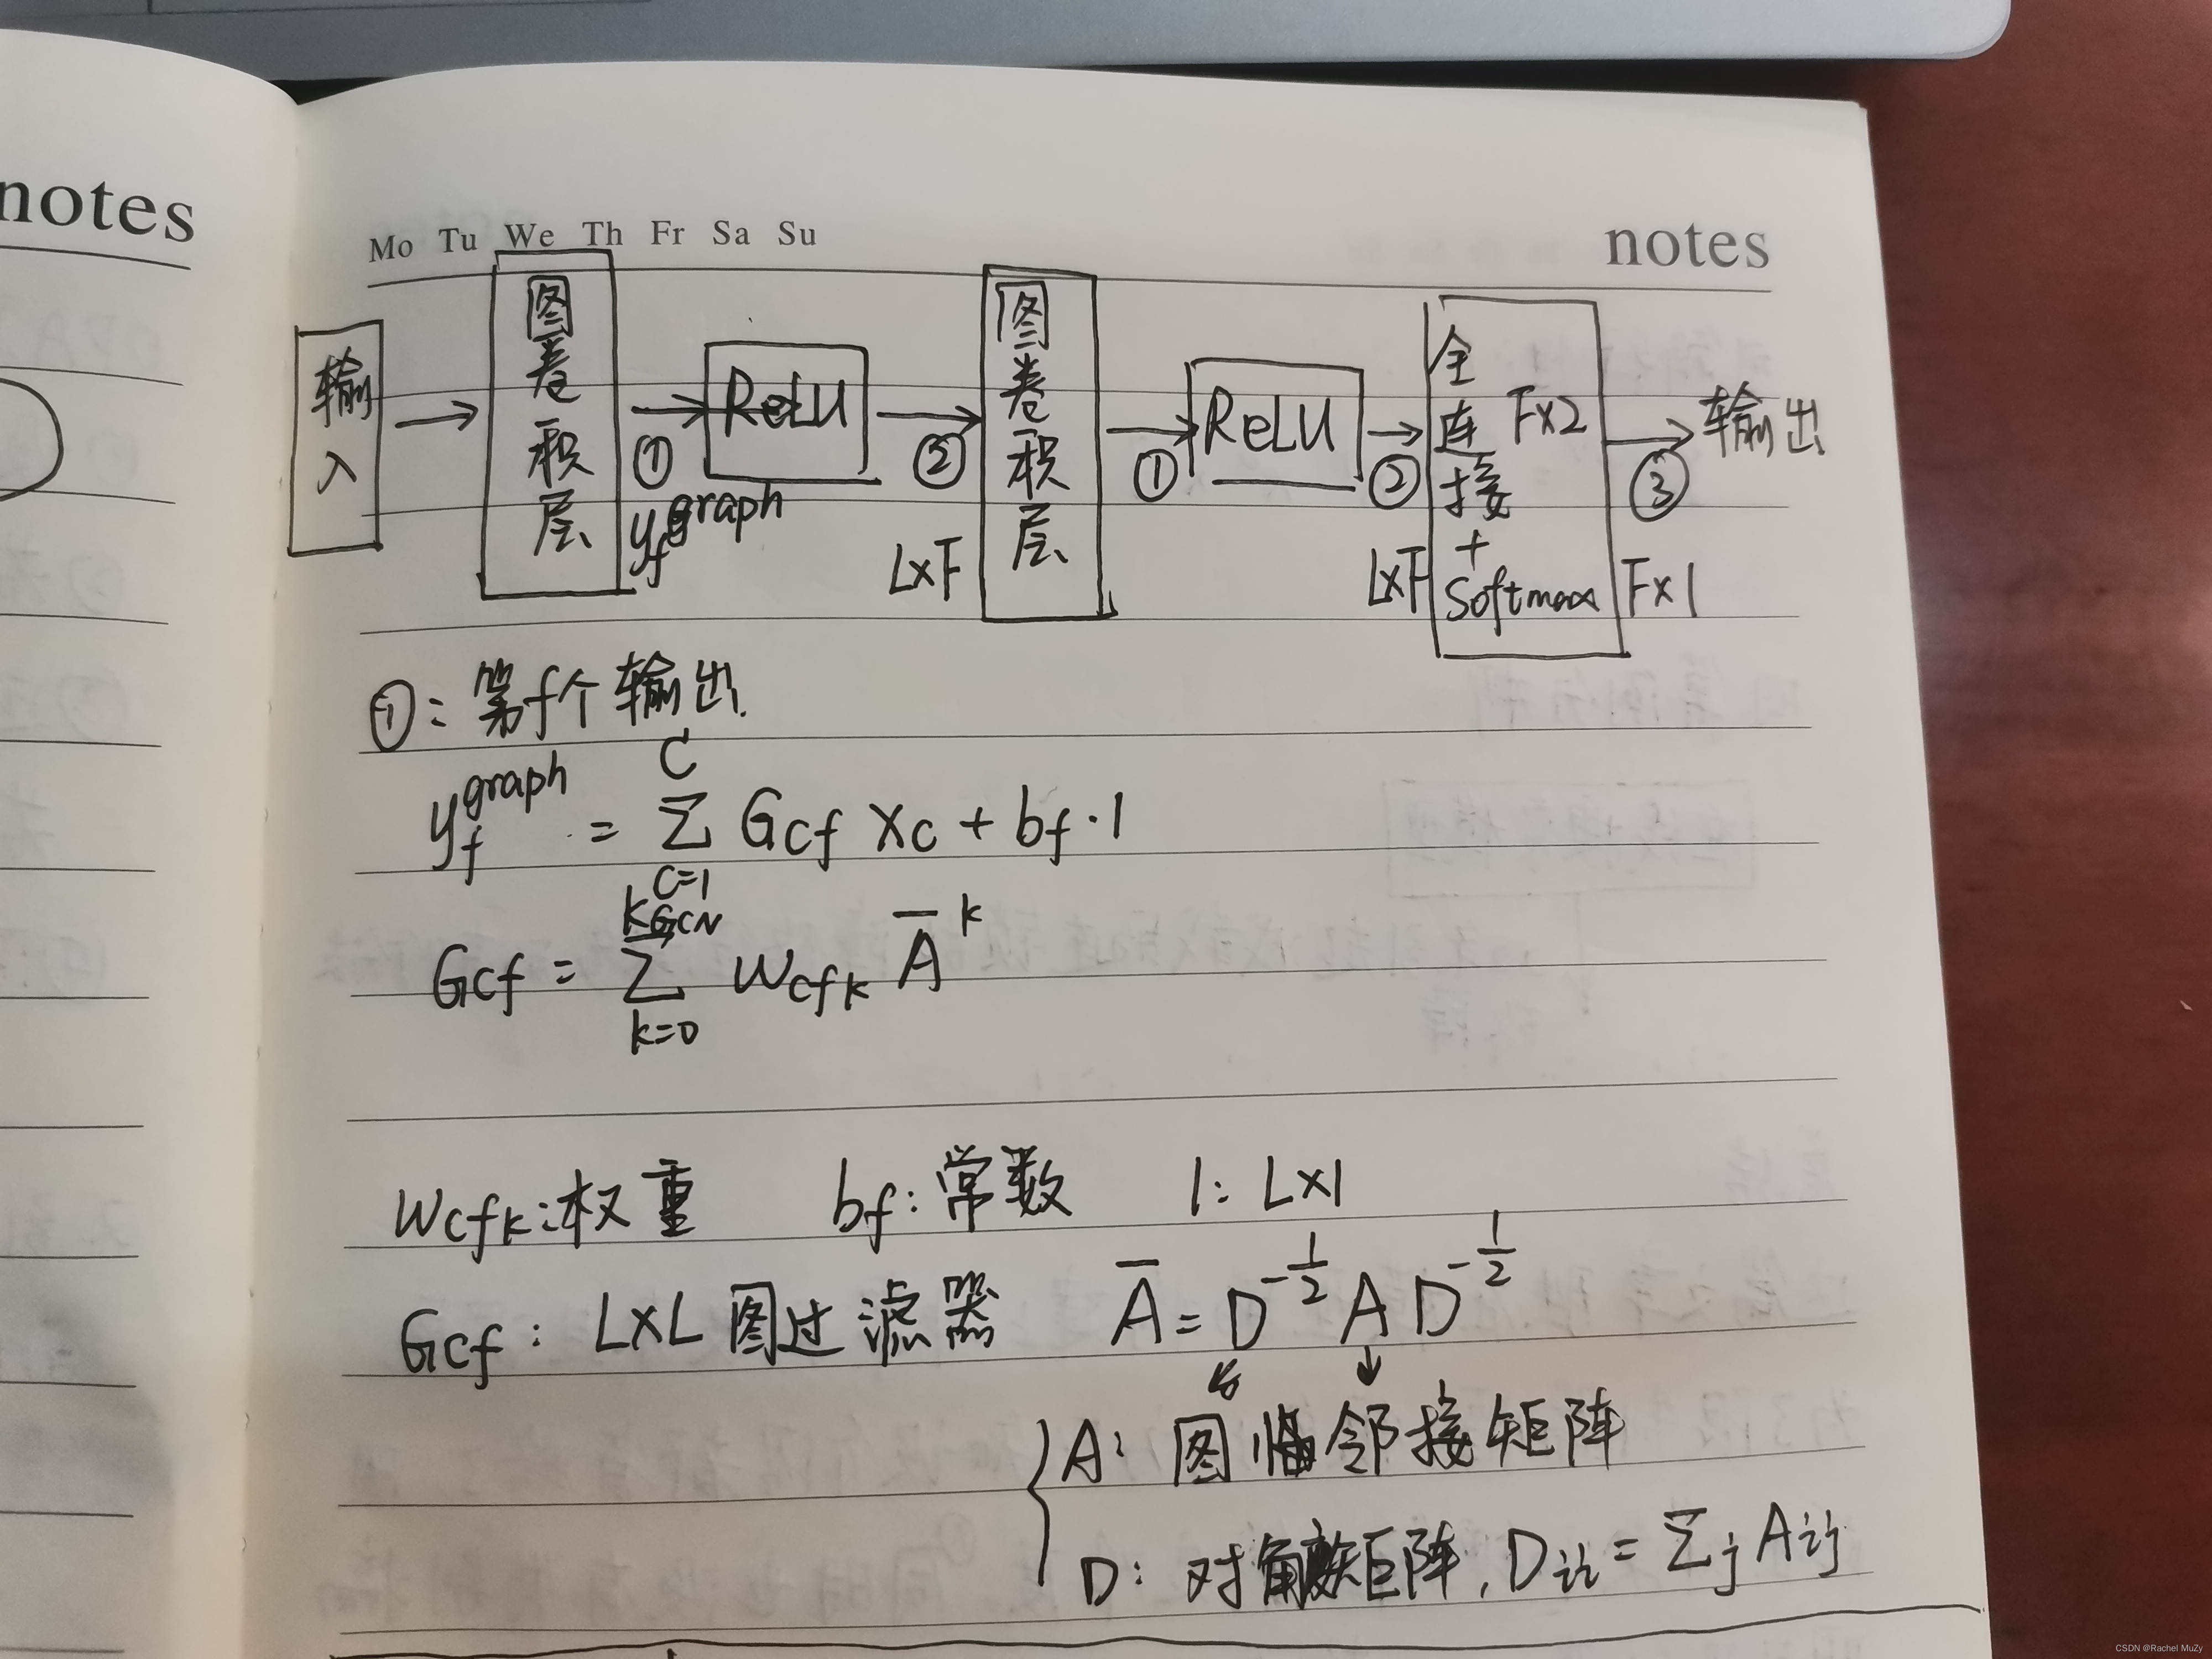 notes
Mo Tu We Th Fr Sa Su
notes
输入 → 图卷积层 → ReLU → 图卷积层 → ReLU → 全连接 + Softmax F×2 → 输出
① ② ① ② ③
y_f^graph L×F L×F F×1
①: 第f个输出.
y_f^graph = Σ_{c=1}^{C} G_{cf} x_c + b_f · 1
G_{cf} = Σ_{k=0}^{K_{GCN}} w_{cfk} Ā^k
w_{cfk}: 权重 b_f: 常数 1: L×1
G_{cf}: L×L 图过滤器 Ā = D^{-1/2} A D^{-1/2}
A: 图邻接矩阵
D: 对角矩阵, D_{ii} = Σ_j A_{ij}
CSDN @Rachel MuZy